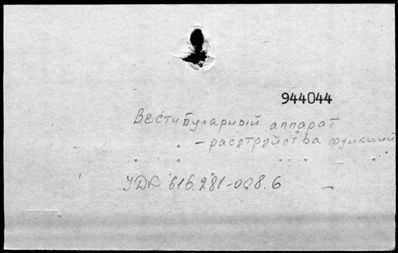 944044
Вестибулярный аппарат
- расстройства функций
УДК 616.281-008.6